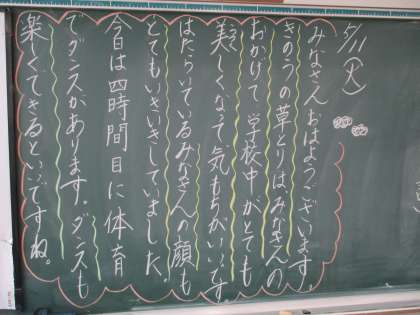 5/11(火)
みなさんおはようございます。
きのうの草とりはみなさんの
おかげで、学校中がとても
美しくなって気もちがいいです。
はたらいているみなさんの顔も
とてもいきいきしていました。
今日は四時間目に体育
でダンスがあります。ダンスも
楽しくできるといいですね。